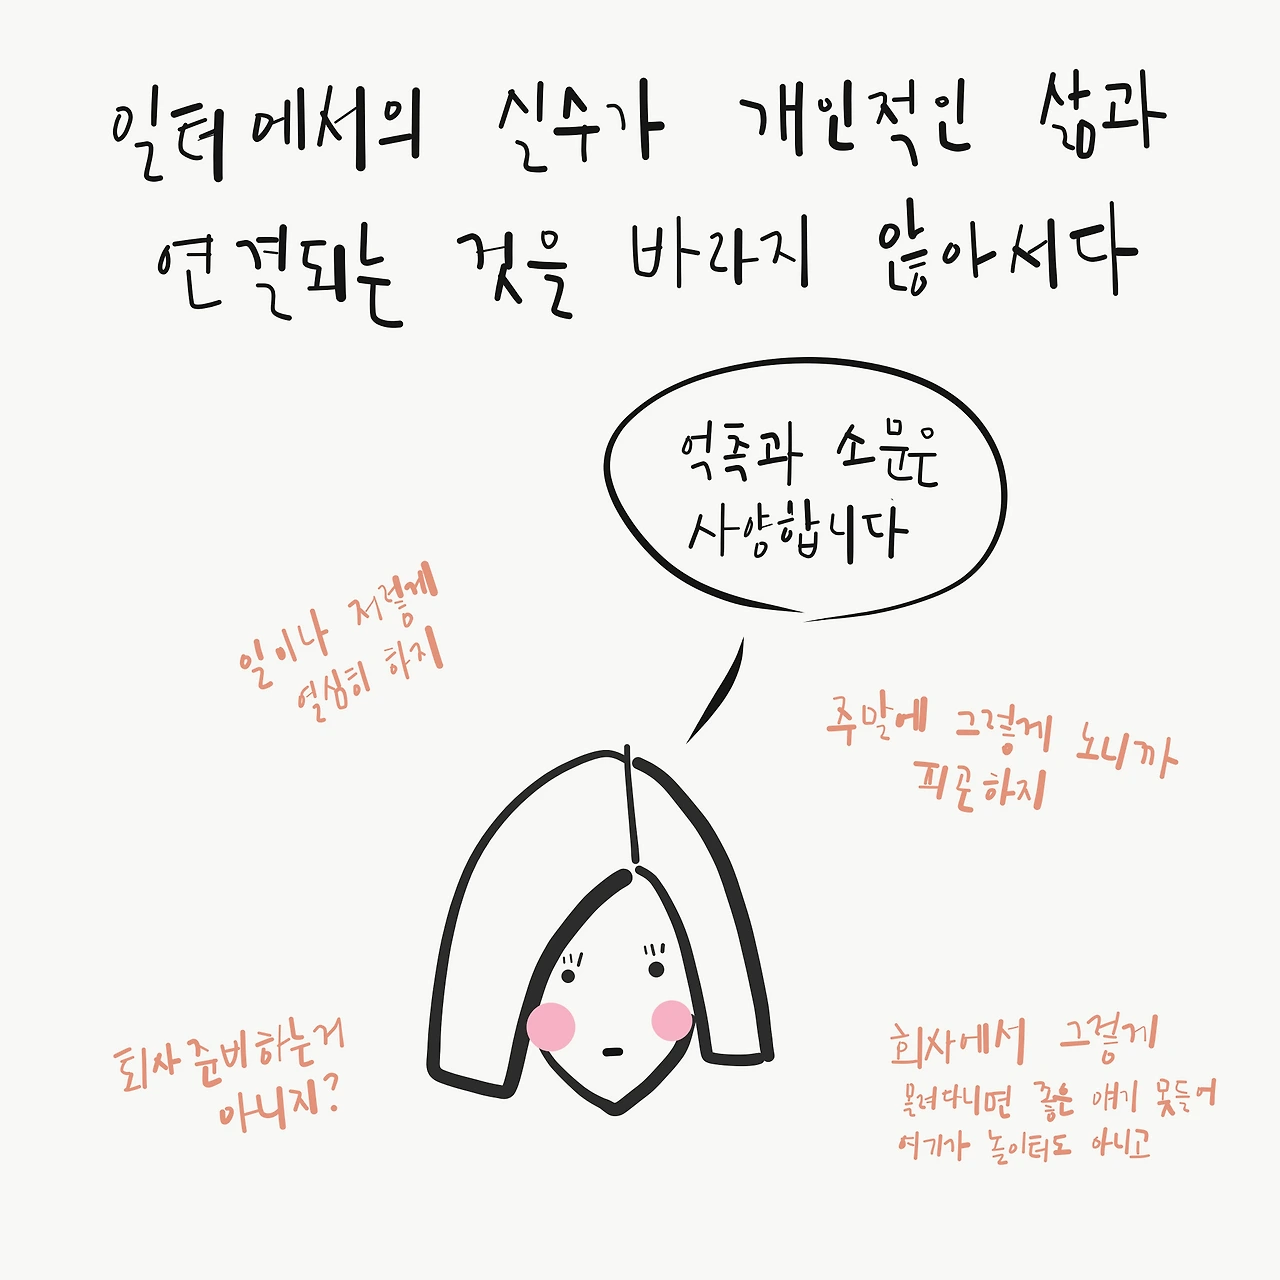 일터에서의 실수가 개인적인 삶과
연결되는 것을 바라지 않아서다
억측과 소문은
사양합니다
일이나 저렇게
열심히 하지
주말에 그렇게 노니까
피곤하지
퇴사 준비하는거
아니지?
회사에서 그렇게
몰려다니면 좋은 얘기 못들어
여기가 놀이터도 아니고